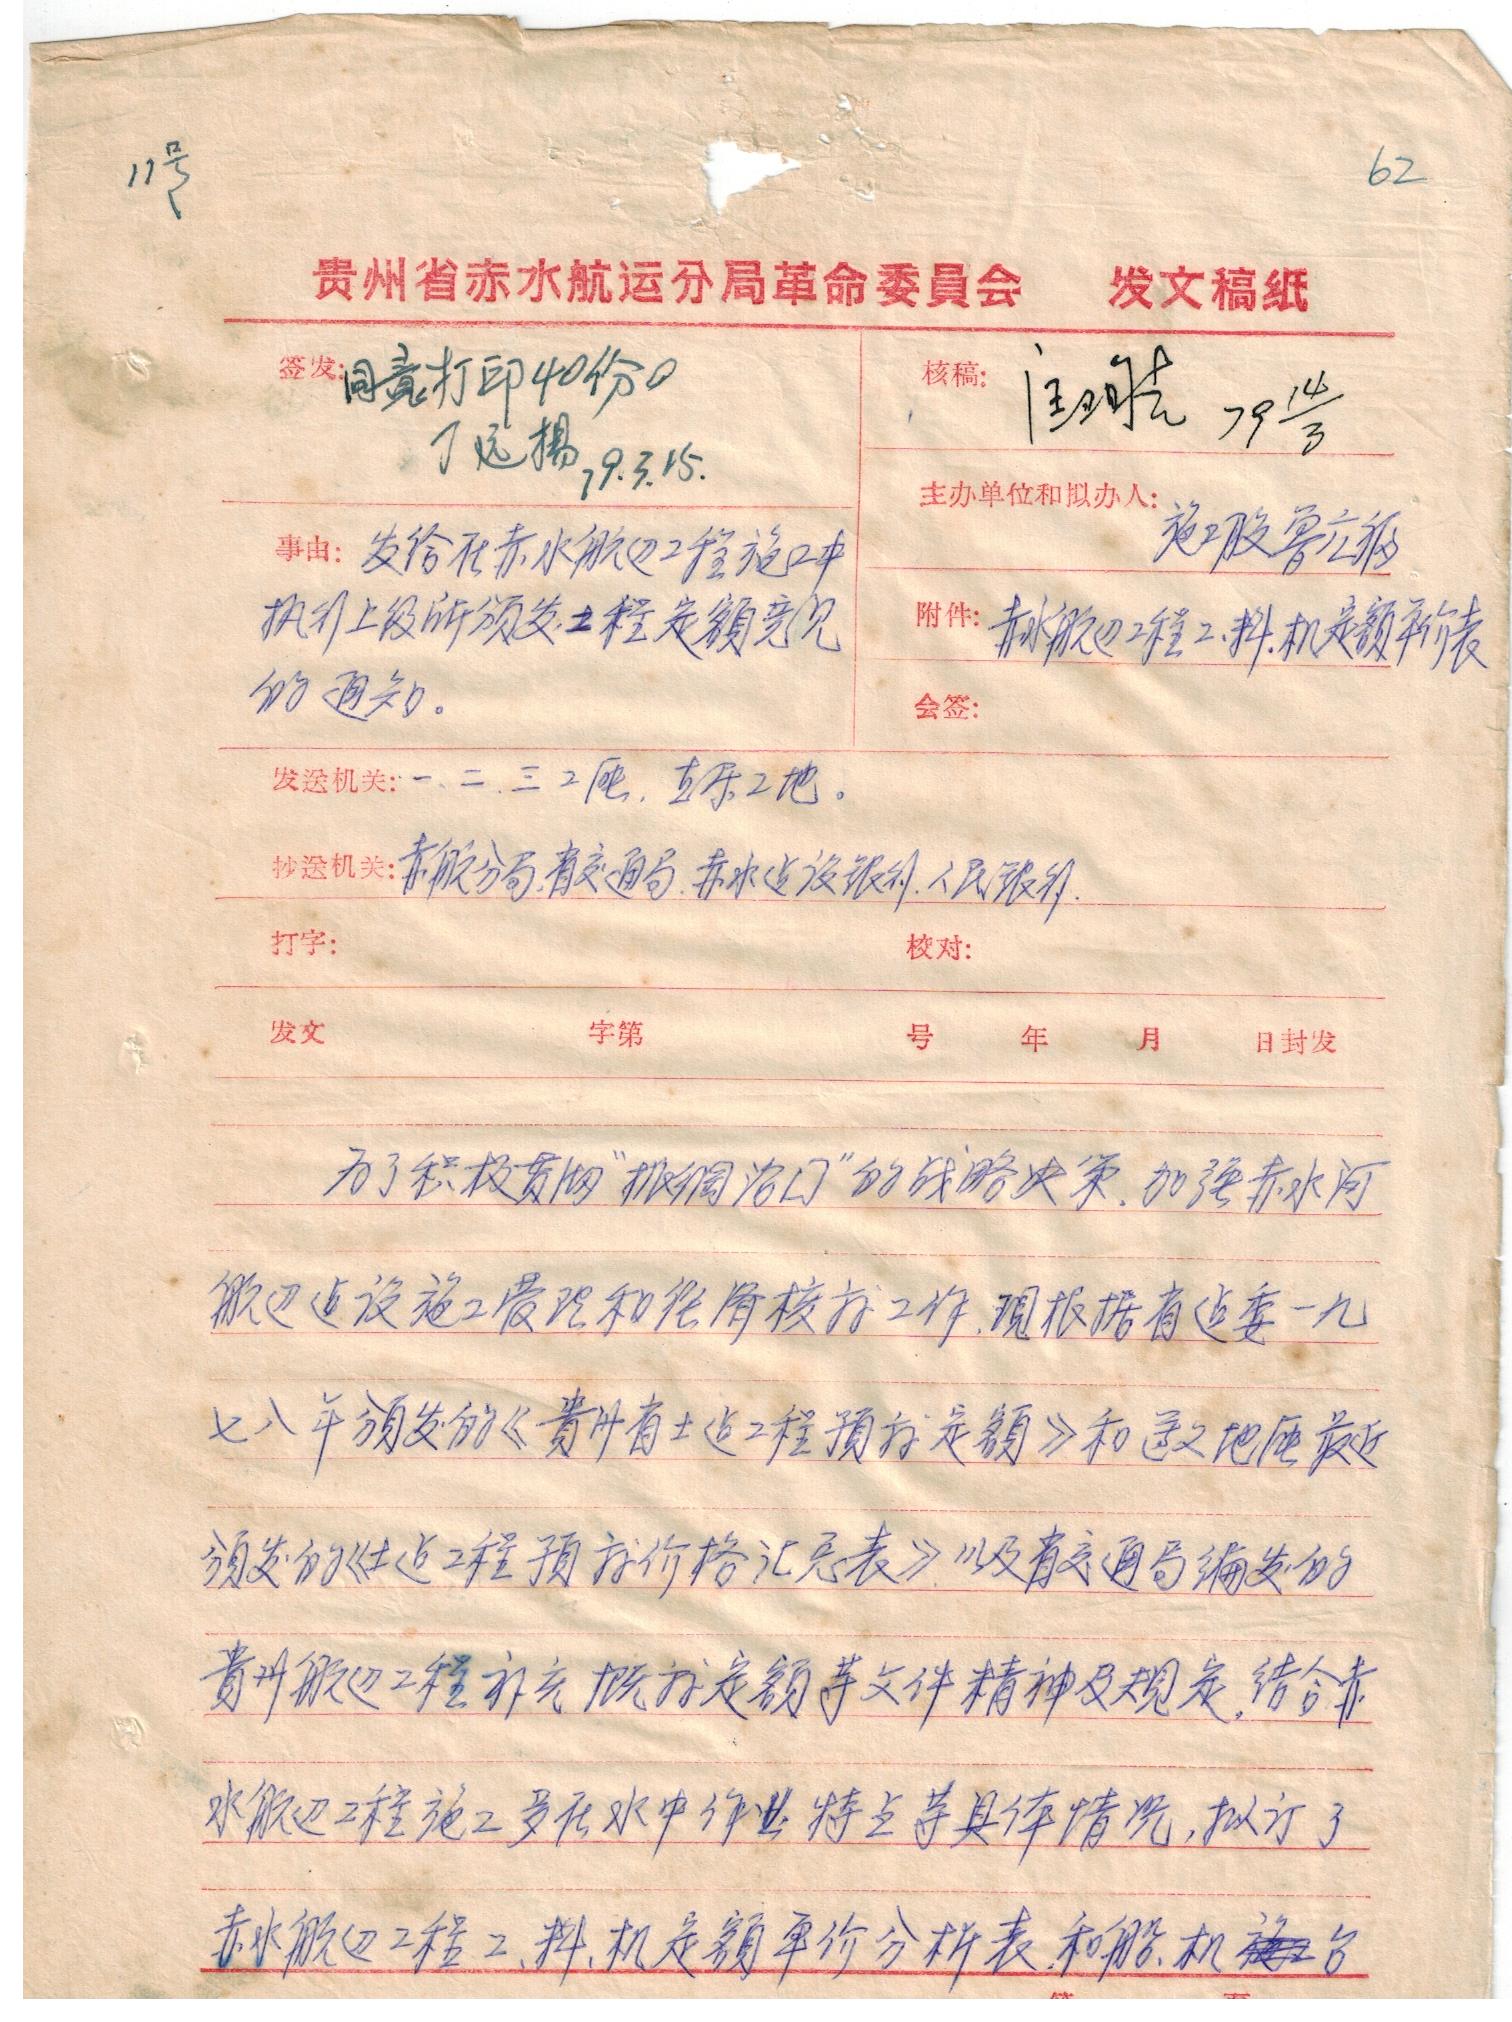 11号
62
贵州省赤水航运分局革命委員会 发文稿纸
签发: 同意打印40份。
丁远揚 79.3.15.
核稿: 79 14/3
主办单位和拟办人:
施工股
事由: 发给在赤水航道工程施工中
执行上级所颁发土程定额意见
的通知。
附件: 赤水航道工程工、料、机定额单价表
会签:
发送机关: 一、二、三工区、直属工地。
抄送机关: 赤航分局、省交通局、赤水建设银行、人民银行.
打字: 校对:
发文 字第 号 年 月 日封发
为了积极贯彻“抓纲治国”的战略决策、加强赤水河
航道建设施工管理和经济核祘工作、现根据省建委一九
七八年颁发的《貴州省土建工程預祘定額》和遵义地区最近
颁发的《土建工程预祘价格汇总表》以及省交通局编发的
貴州航道工程补充概祘定额等文件精神及规定，结合赤
水航道工程施工多在水中作业特点等具体情况，拟订了
赤水航道工程工、料、机定额单价分析表、和船、机台